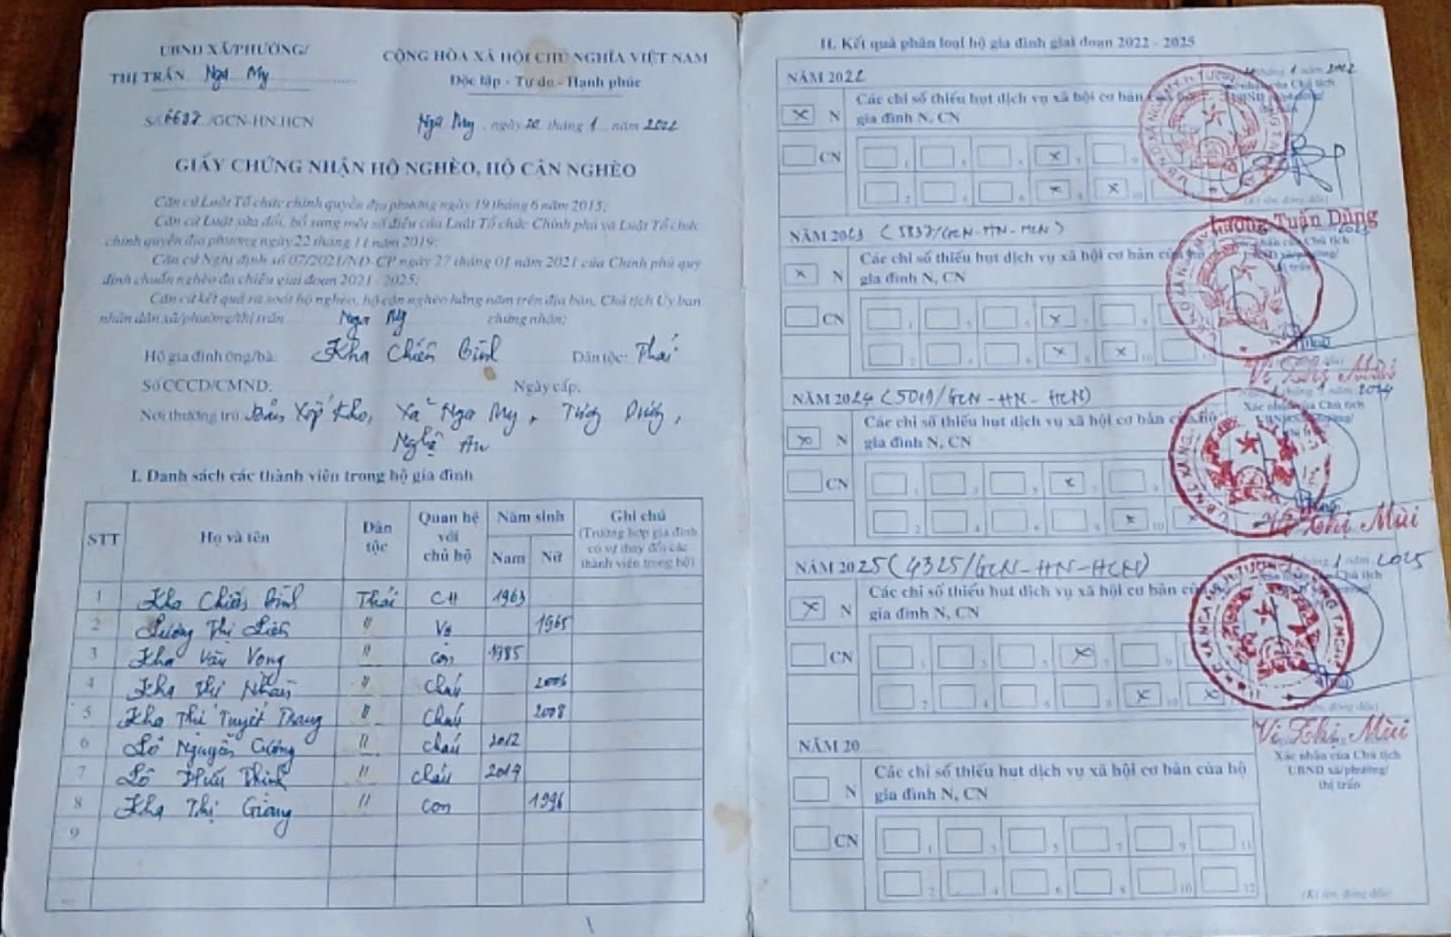 UBND XÃ/PHƯỜNG/
THỊ TRẤN Nga My
CỘNG HÒA XÃ HỘI CHỦ NGHĨA VIỆT NAM
Độc lập - Tự do - Hạnh phúc
Số 6687 /GCN-HN.HCN
Nga My, ngày 20 tháng 1 năm 2022
GIẤY CHỨNG NHẬN HỘ NGHÈO, HỘ CẬN NGHÈO
Căn cứ Luật Tổ chức chính quyền địa phương ngày 19 tháng 6 năm 2015;
Căn cứ Luật sửa đổi, bổ sung một số điều của Luật Tổ chức Chính phủ và Luật Tổ chức
chính quyền địa phương ngày 22 tháng 11 năm 2019;
Căn cứ Nghị định số 07/2021/NĐ-CP ngày 27 tháng 01 năm 2021 của Chính phủ quy
định chuẩn nghèo đa chiều giai đoạn 2021 - 2025;
Căn cứ kết quả rà soát hộ nghèo, hộ cận nghèo hằng năm trên địa bàn, Chủ tịch Ủy ban
nhân dân xã/phường/thị trấn Nga My chứng nhận:
Hộ gia đình ông/bà: Kha Chiến Bình Dân tộc: Thái
Số CCCD/CMND: Ngày cấp:
Nơi thường trú Bản Xốp Kho, Xã Nga My, Tương Dương,
Nghệ An
I. Danh sách các thành viên trong hộ gia đình
STT Họ và tên Dân tộc Quan hệ với chủ hộ Năm sinh Nam Nữ Ghi chú (Trường hợp gia đình có sự thay đổi các thành viên trong hộ)
1 Kha Chiến Bình Thái CH 1963
2 Lương Thị Liên " Vợ 1965
3 Kha Văn Vong " con 1985
4 Kha Thị Nhàn " cháu 2006
5 Kha Thị Tuyết Trang " cháu 2008
6 Lô Nguyễn Cương " cháu 2012
7 Lô Hữu Thình " cháu 2019
8 Kha Thị Giang " con 1996
9
II. Kết quả phân loại hộ gia đình giai đoạn 2022 - 2025
NĂM 2022
x N
Các chỉ số thiếu hụt dịch vụ xã hội cơ bản
gia đình N, CN
CN
Lương Tuấn Dũng
NĂM 2023 (5837/GCN-HN-HCN)
x N
Các chỉ số thiếu hụt dịch vụ xã hội cơ bản của hộ
gia đình N, CN
CN
Vi Thị Mùi
NĂM 2024 (5019/GCN-HN-HCN)
x N
Các chỉ số thiếu hụt dịch vụ xã hội cơ bản của hộ
gia đình N, CN
Xác nhận của Chủ tịch
CN
Vi Thị Mùi
NĂM 2025 (4325/GCN-HN-HCN)
1 năm 2025
x N
Các chỉ số thiếu hụt dịch vụ xã hội cơ bản của
gia đình N, CN
CN
Vi Thị Mùi
NĂM 20
Xác nhận của Chủ tịch
UBND xã/phường/
thị trấn
N
Các chỉ số thiếu hụt dịch vụ xã hội cơ bản của hộ
gia đình N, CN
CN
1 3 5 7 9 11
2 4 6 8 10 12
(Ký tên, đóng dấu)